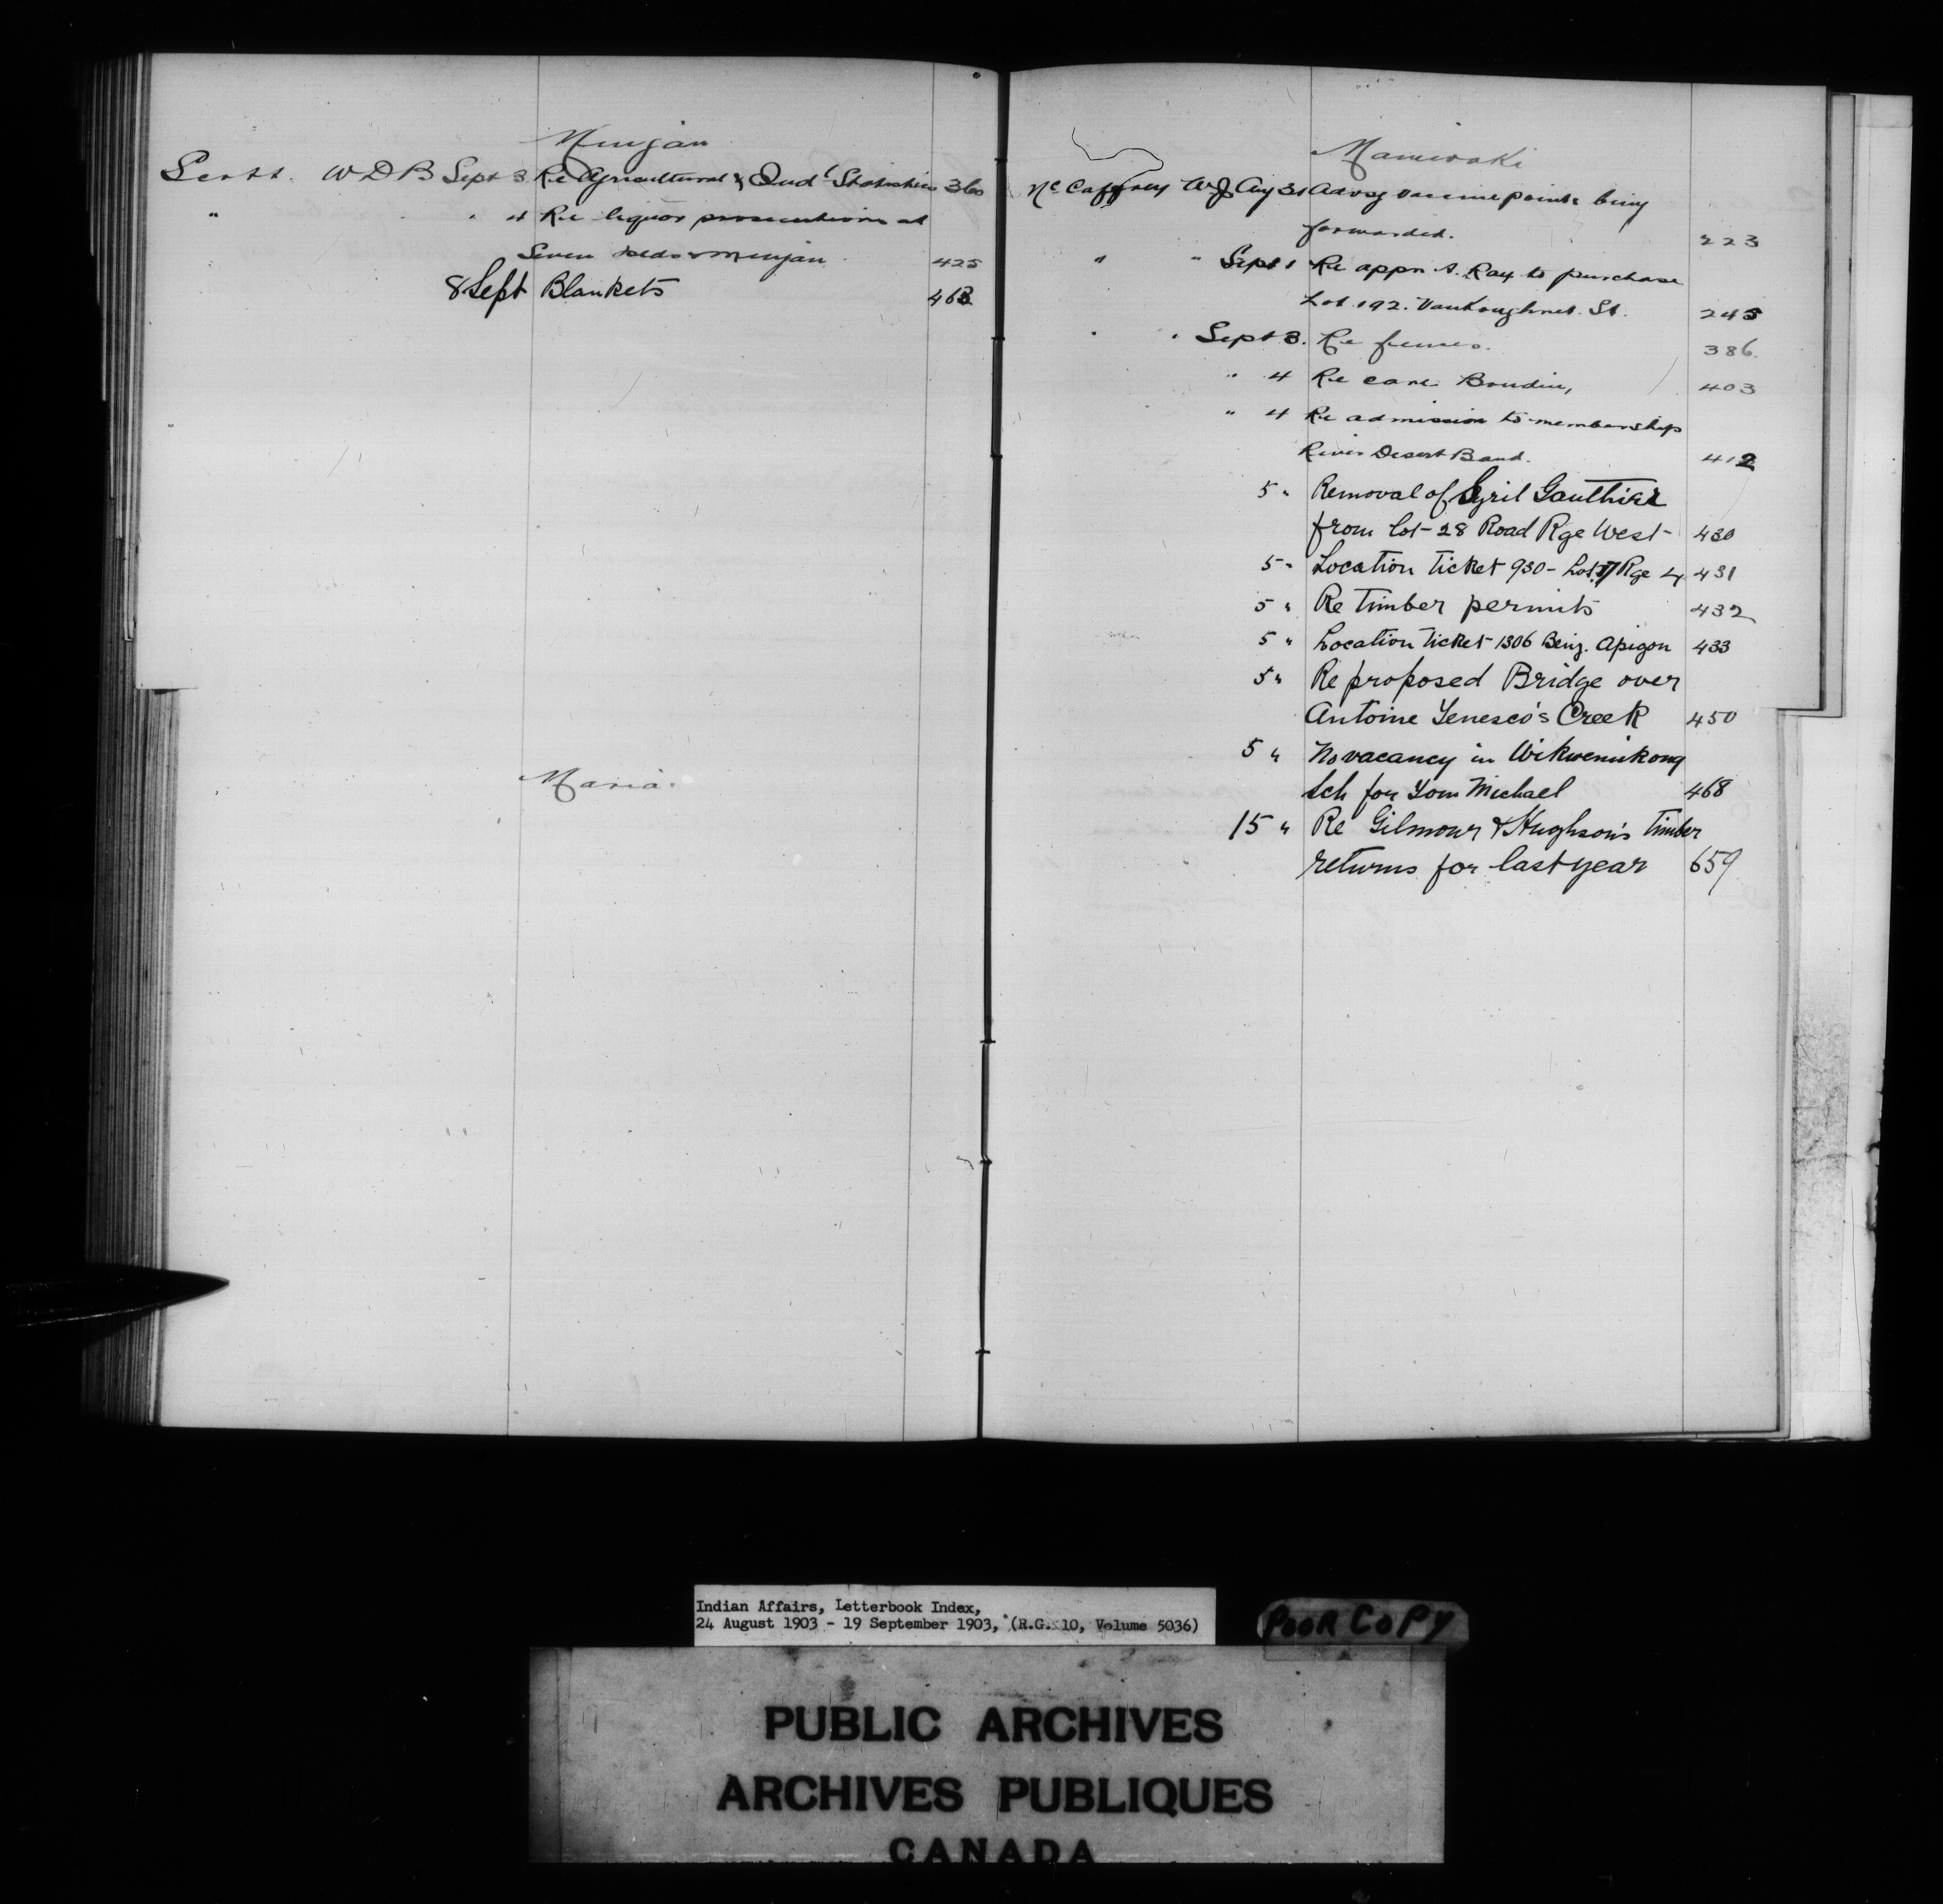 Mingan
Scott. W D B Sept 3 Re Agricultural & Ind'l Statistics 360
" " 4 Re liquor prosecutions at
Seven Islds & Mingan 425
8 Sept Blankets 463
Maria.
Maniwaki
McCaffrey WJ Aug 31 Advsg vaccine points being
forwarded. 223
" " Sept 1 Re appn A. Ray to purchase
Lot 192. Vankoughnet St. 245
" " Sept 3. Re fences. 386.
" 4 Re Boudin, 403
" 4 Re admission to membership
River Desert Band. 412
5 " Removal of Cyril Gauthier
from Lot 28 Road Rge West 430
5 " Location Ticket 930 - Lot 17 Rge 4 431
5 " Re Timber permits 432
5 " Location Ticket 1306 Benj. Apigon 433
5 " Re proposed Bridge over
Antoine Tenesco's Creek 450
5 " No vacancy in Wikwemikong
Sch for Tom Michael 468
15 " Re Gilmour & Hughson's Timber
returns for last year 659
Indian Affairs, Letterbook Index,
24 August 1903 - 19 September 1903, (R.G. 10, Volume 5036)
POOR COPY
PUBLIC ARCHIVES
ARCHIVES PUBLIQUES
CANADA